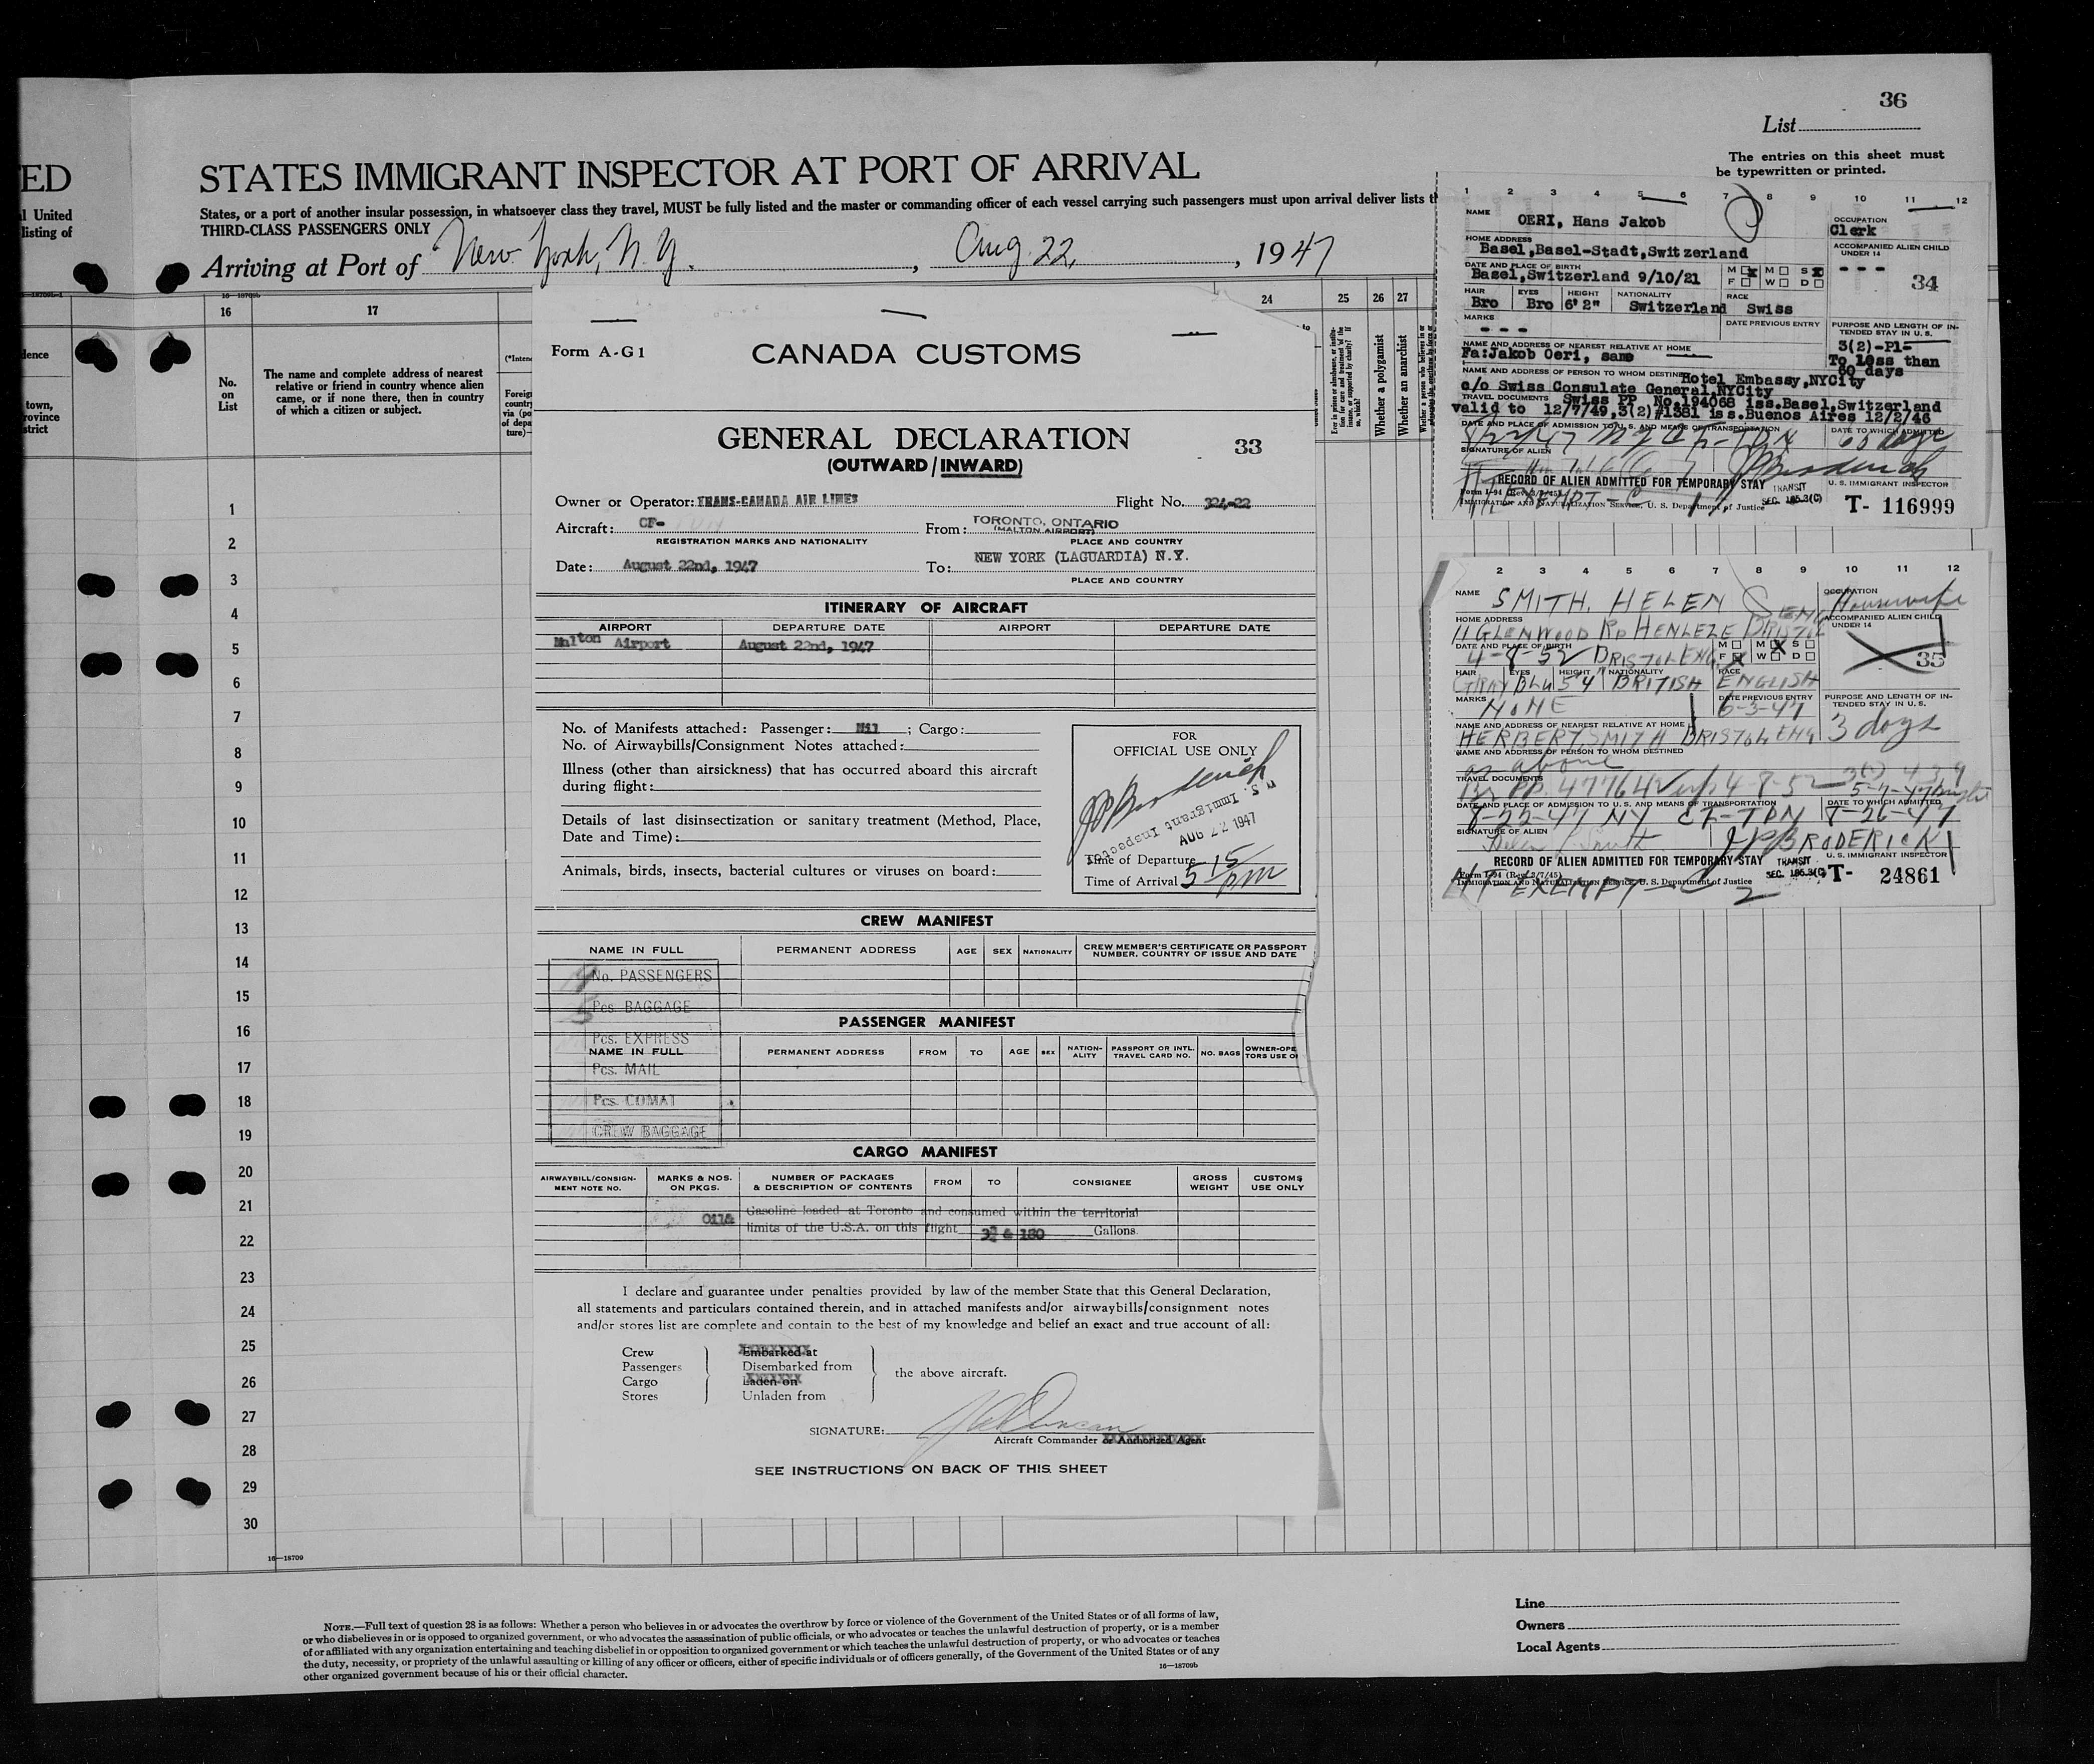 36
List
The entries on this sheet must
be typewritten or printed.
ED
STATES IMMIGRANT INSPECTOR AT PORT OF ARRIVAL
l United
listing of
States, or a port of another insular possession, in whatsoever class they travel, MUST be fully listed and the master or commanding officer of each vessel carrying such passengers must upon arrival deliver lists th
THIRD-CLASS PASSENGERS ONLY
Arriving at Port of New York, N.Y. , Aug. 22, , 1947
16—18709b
16 17 24 25 26 27
dence
town,
rovince
strict
No.
on
List
The name and complete address of nearest
relative or friend in country whence alien
came, or if none there, then in country
of which a citizen or subject.
(*Inten
Foreig
country
via (po
of depa
ture)—
Whether a polygamist
Whether an anarchist
1
2
3
4
5
6
7
8
9
10
11
12
13
14
15
16
17
18
19
20
21
22
23
24
25
26
27
28
29
30
16—18709
Form A-G1
CANADA CUSTOMS
GENERAL DECLARATION
(OUTWARD/INWARD)
33
Owner or Operator: TRANS-CANADA AIR LINES Flight No. 324-22
Aircraft: CF- From: TORONTO, ONTARIO
(MALTON AIRPORT)
REGISTRATION MARKS AND NATIONALITY PLACE AND COUNTRY
Date: August 22nd, 1947 To: NEW YORK (LAGUARDIA) N.Y.
PLACE AND COUNTRY
ITINERARY OF AIRCRAFT
AIRPORT DEPARTURE DATE AIRPORT DEPARTURE DATE
Malton Airport August 22nd, 1947
No. of Manifests attached: Passenger: Nil ; Cargo:
No. of Airwaybills/Consignment Notes attached:
Illness (other than airsickness) that has occurred aboard this aircraft
during flight:
Details of last disinsectization or sanitary treatment (Method, Place,
Date and Time):
Animals, birds, insects, bacterial cultures or viruses on board:
FOR
OFFICIAL USE ONLY
JP Broderick
U. S. Immigrant Inspector
AUG 22 1947
Time of Departure
Time of Arrival 5 15 PM
CREW MANIFEST
NAME IN FULL PERMANENT ADDRESS AGE SEX NATIONALITY CREW MEMBER'S CERTIFICATE OR PASSPORT
NUMBER, COUNTRY OF ISSUE AND DATE
No. PASSENGERS
5 Pcs. BAGGAGE
PASSENGER MANIFEST
Pcs. EXPRESS
NAME IN FULL PERMANENT ADDRESS FROM TO AGE SEX NATION-
ALITY PASSPORT OR INTL.
TRAVEL CARD NO. NO. BAGS OWNER-OPE
TORS USE O
Pcs. MAIL
Pcs. COMAT
CREW BAGGAGE
CARGO MANIFEST
AIRWAYBILL/CONSIGN-
MENT NOTE NO. MARKS & NOS.
ON PKGS. NUMBER OF PACKAGES
& DESCRIPTION OF CONTENTS FROM TO CONSIGNEE GROSS
WEIGHT CUSTOMS
USE ONLY
Oil& Gasoline loaded at Toronto and consumed within the territorial
limits of the U.S.A. on this flight & 180 Gallons.
I declare and guarantee under penalties provided by law of the member State that this General Declaration,
all statements and particulars contained therein, and in attached manifests and/or airwaybills/consignment notes
and/or stores list are complete and contain to the best of my knowledge and belief an exact and true account of all:
Crew Embarked at
Passengers Disembarked from
Cargo Laden on
Stores Unladen from
the above aircraft.
SIGNATURE:
Aircraft Commander or Authorized Agent
SEE INSTRUCTIONS ON BACK OF THIS SHEET
1 2 3 4 5 6 7 8 9 10 11 12
NAME OERI, Hans Jakob
OCCUPATION
Clerk
HOME ADDRESS
Basel,Basel-Stadt,Switzerland
ACCOMPANIED ALIEN CHILD
UNDER 14
- - -
34
DATE AND PLACE OF BIRTH
Basel,Switzerland 9/10/21
M x M S x
F W D
HAIR EYES HEIGHT NATIONALITY RACE
Bro Bro 6'2" Switzerland Swiss
MARKS
- - -
DATE PREVIOUS ENTRY
PURPOSE AND LENGTH OF IN-
TENDED STAY IN U. S.
3(2)-P1-
To less than
60 days
NAME AND ADDRESS OF NEAREST RELATIVE AT HOME
Fa:Jakob Oeri, same
NAME AND ADDRESS OF PERSON TO WHOM DESTINED
Hotel Embassy,NYCity
c/o Swiss Consulate General,NYCity
TRAVEL DOCUMENTS Swiss PP No.194068 iss.Basel,Switzerland
valid to 12/7/49,3(2)#1381 iss.Buenos Aires 12/2/46
DATE AND PLACE OF ADMISSION TO U. S. AND MEANS OF TRANSPORTATION
DATE TO WHICH ADMITTED
8/22/47 NY CF-TDN 60 days
SIGNATURE OF ALIEN
JP Broderick
RECORD OF ALIEN ADMITTED FOR TEMPORARY STAY
U. S. IMMIGRANT INSPECTOR
Form I-94 (Rev. 3/7/45)
IMMIGRATION AND NATURALIZATION SERVICE, U. S. Department of Justice
TRANSIT
SEC. 165.3(C)
T- 116999
HT EXEMPT - C
2 3 4 5 6 7 8 9 10 11 12
NAME SMITH, HELEN S
OCCUPATION
Housewife
HOME ADDRESS
11 GLENWOOD RD HENLEZE BRISTOL ENG
ACCOMPANIED ALIEN CHILD
UNDER 14
35
DATE AND PLACE OF BIRTH
4-8-52 BRISTOL ENG
M M X S
F X W D
HAIR EYES HEIGHT NATIONALITY RACE
GRAY BLU 5'4" BRITISH ENGLISH
MARKS
NONE
DATE PREVIOUS ENTRY
6-3-47
PURPOSE AND LENGTH OF IN-
TENDED STAY IN U. S.
3 days
NAME AND ADDRESS OF NEAREST RELATIVE AT HOME
HERBERT SMITH BRISTOL ENG
NAME AND ADDRESS OF PERSON TO WHOM DESTINED
as above
TRAVEL DOCUMENTS
Br PP. 47764 exp 4-8-52 3(2) 439
5-7-47
DATE AND PLACE OF ADMISSION TO U. S. AND MEANS OF TRANSPORTATION
DATE TO WHICH ADMITTED
8-22-47 NY CF-TDN 8-26-47
SIGNATURE OF ALIEN
Helen Smith
JP BRODERICK
RECORD OF ALIEN ADMITTED FOR TEMPORARY STAY
U. S. IMMIGRANT INSPECTOR
Form I-94 (Rev. 3/7/45)
IMMIGRATION AND NATURALIZATION SERVICE, U. S. Department of Justice
TRANSIT
SEC. 165.3(C)
T- 24861
HT EXEMPT - C
2
Line
Owners
Local Agents
NOTE.—Full text of question 28 is as follows: Whether a person who believes in or advocates the overthrow by force or violence of the Government of the United States or of all forms of law,
or who disbelieves in or is opposed to organized government, or who advocates the assassination of public officials, or who advocates or teaches the unlawful destruction of property, or is a member
of or affiliated with any organization entertaining and teaching disbelief in or opposition to organized government or which teaches the unlawful destruction of property, or who advocates or teaches
the duty, necessity, or propriety of the unlawful assaulting or killing of any officer or officers, either of specific individuals or of officers generally, of the Government of the United States or of any
other organized government because of his or their official character.
16—18709b